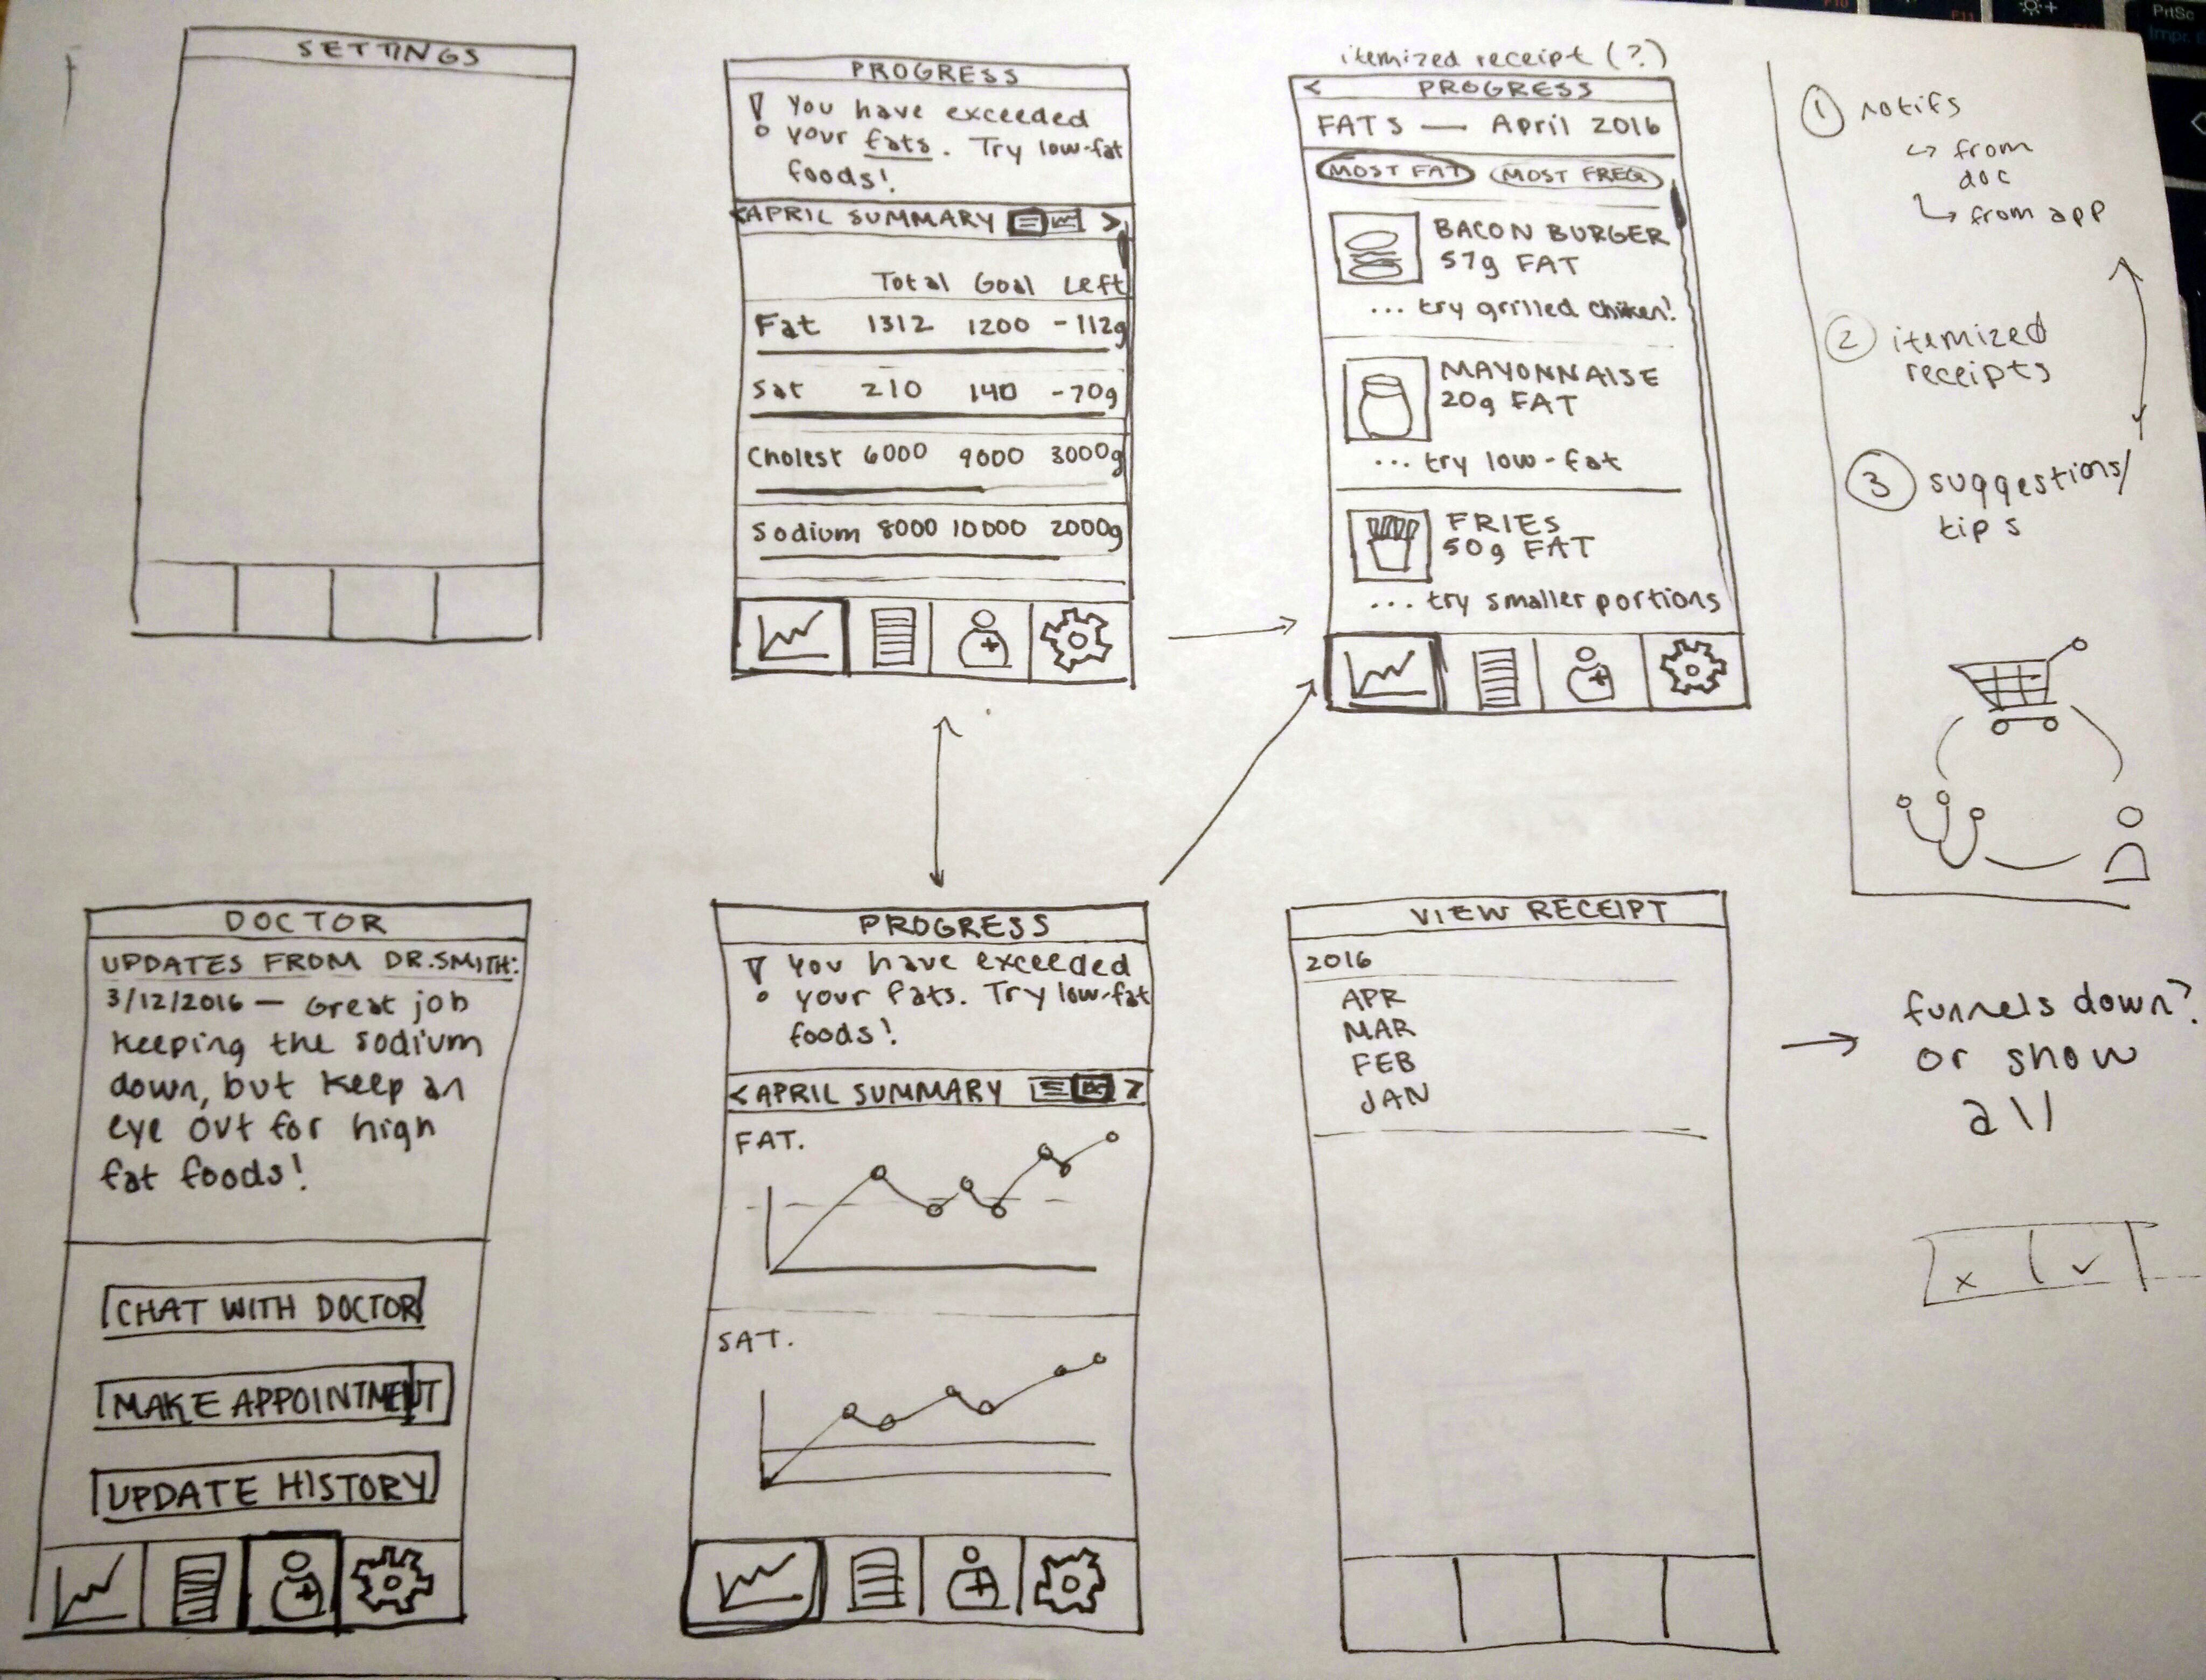 SETTINGS
PROGRESS
! You have exceeded
your fats. Try low-fat
foods!
<APRIL SUMMARY >
Total Goal Left
Fat 1312 1200 -112g
Sat 210 140 -70g
Cholest 6000 9000 3000g
Sodium 8000 10000 2000g
itemized receipt (?)
< PROGRESS
FATS — April 2016
MOST FAT MOST FREQ
BACON BURGER
57g FAT
... try grilled chicken!
MAYONNAISE
20g FAT
... try low-fat
FRIES
50g FAT
... try smaller portions
1 notifs
↪ from
doc
↪ from app
2 itemized
receipts
3 suggestions/
tips
DOCTOR
UPDATES FROM DR.SMITH:
3/12/2016 — Great job
keeping the sodium
down, but keep an
eye out for high
fat foods!
CHAT WITH DOCTOR
MAKE APPOINTMENT
UPDATE HISTORY
PROGRESS
! You have exceeded
your fats. Try low-fat
foods!
<APRIL SUMMARY >
FAT.
SAT.
VIEW RECEIPT
2016
APR
MAR
FEB
JAN
→ funnels down?
or show
all
x ✓
PrtSc